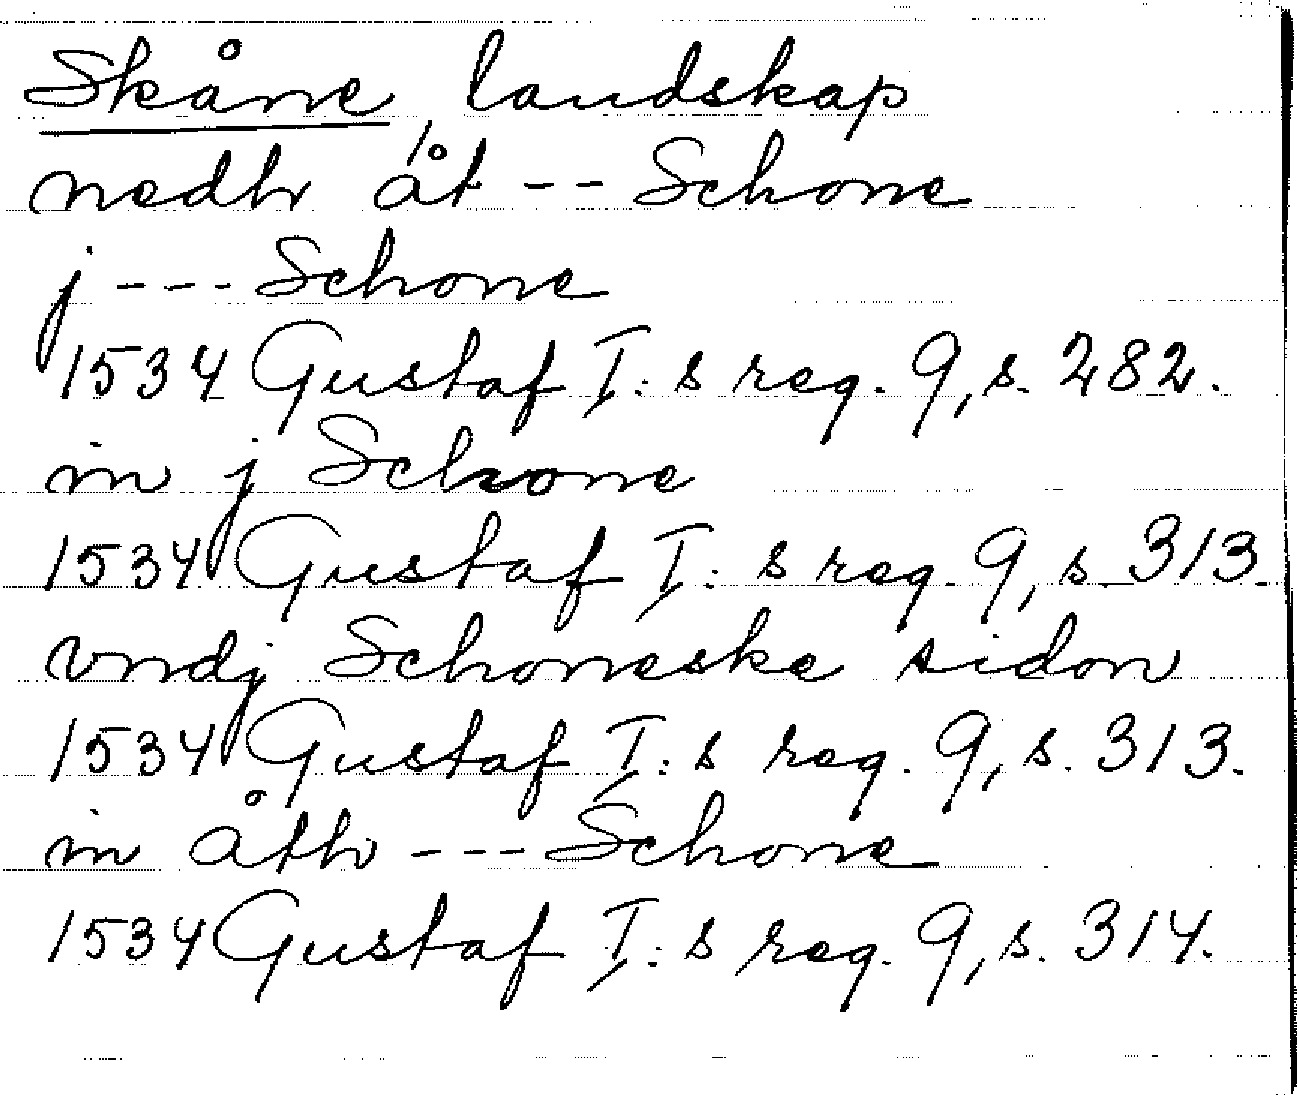 Skåne, landskap
nedh åt -- Schone
j --- Schone
1534 Gustaf I:s reg. 9, s. 282.
in j Schone
1534 Gustaf I:s reg. 9, s. 313.
vndj Schoneske sidon
1534 Gustaf I:s reg. 9, s. 313.
in åth --- Schone
1534 Gustaf I:s reg. 9, s. 314.